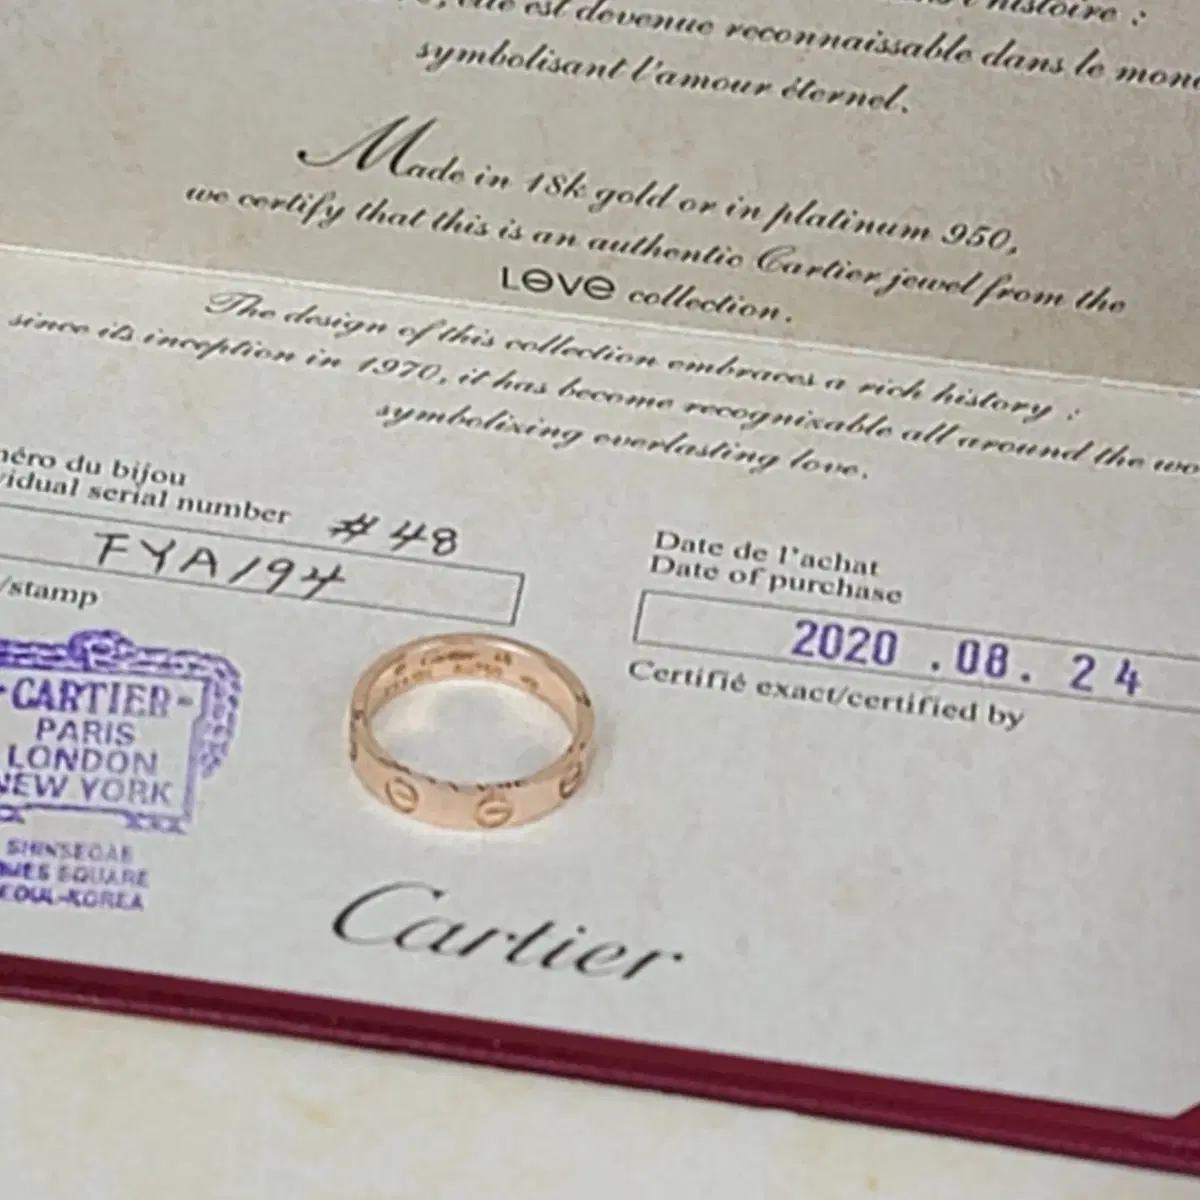 l'histoire :
elle est devenue reconnaissable dans le
symbolisant l'amour éternel.
Made in 18k gold or in platinum 950,
we certify that this is an authentic Cartier jewel from the
LOVE collection.
The design of this collection embraces a rich history :
since its inception in 1970, it has become recognizable all around the
symbolizing everlasting love.
du bijou
serial number #48
FYA194
/stamp
Date de l'achat
Date of purchase
2020 .08. 24
Certifié exact/certified by
CARTIER
PARIS
LONDON
NEW YORK
SHINSEGAE
SQUARE
SEOUL-KOREA
Cartier